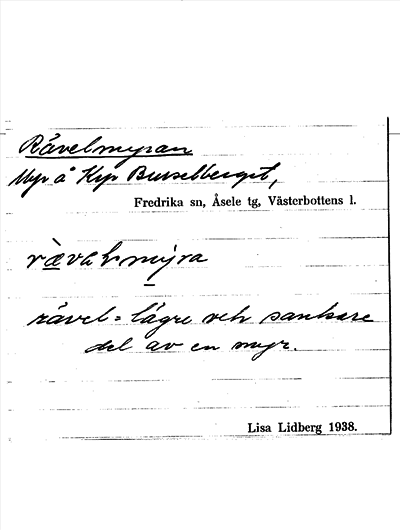 Rävelmyran
Myr å Krp Busselberget,
Fredrika sn, Åsele tg, Västerbottens l.
ræ̀valmy̱ra
rävel = lägre och sankare
del av en myr.
Lisa Lidberg 1938.